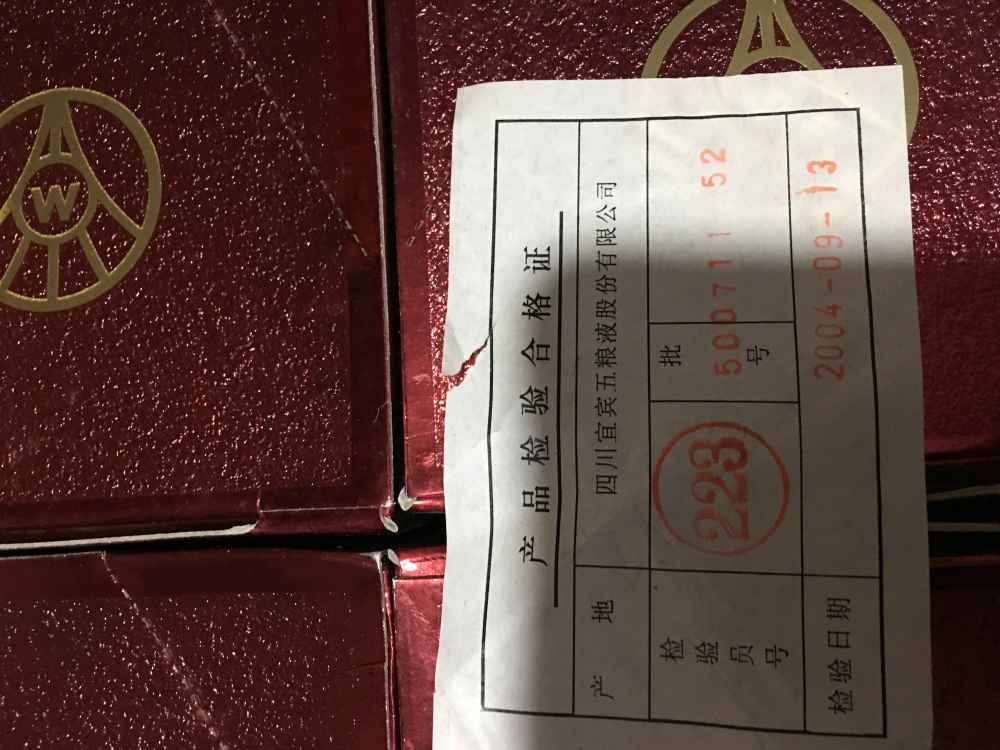 产品检验合格证
产地 四川宜宾五粮液股份有限公司
检验员号 223 批号 5000711 52
检验日期 2004-09-13
W